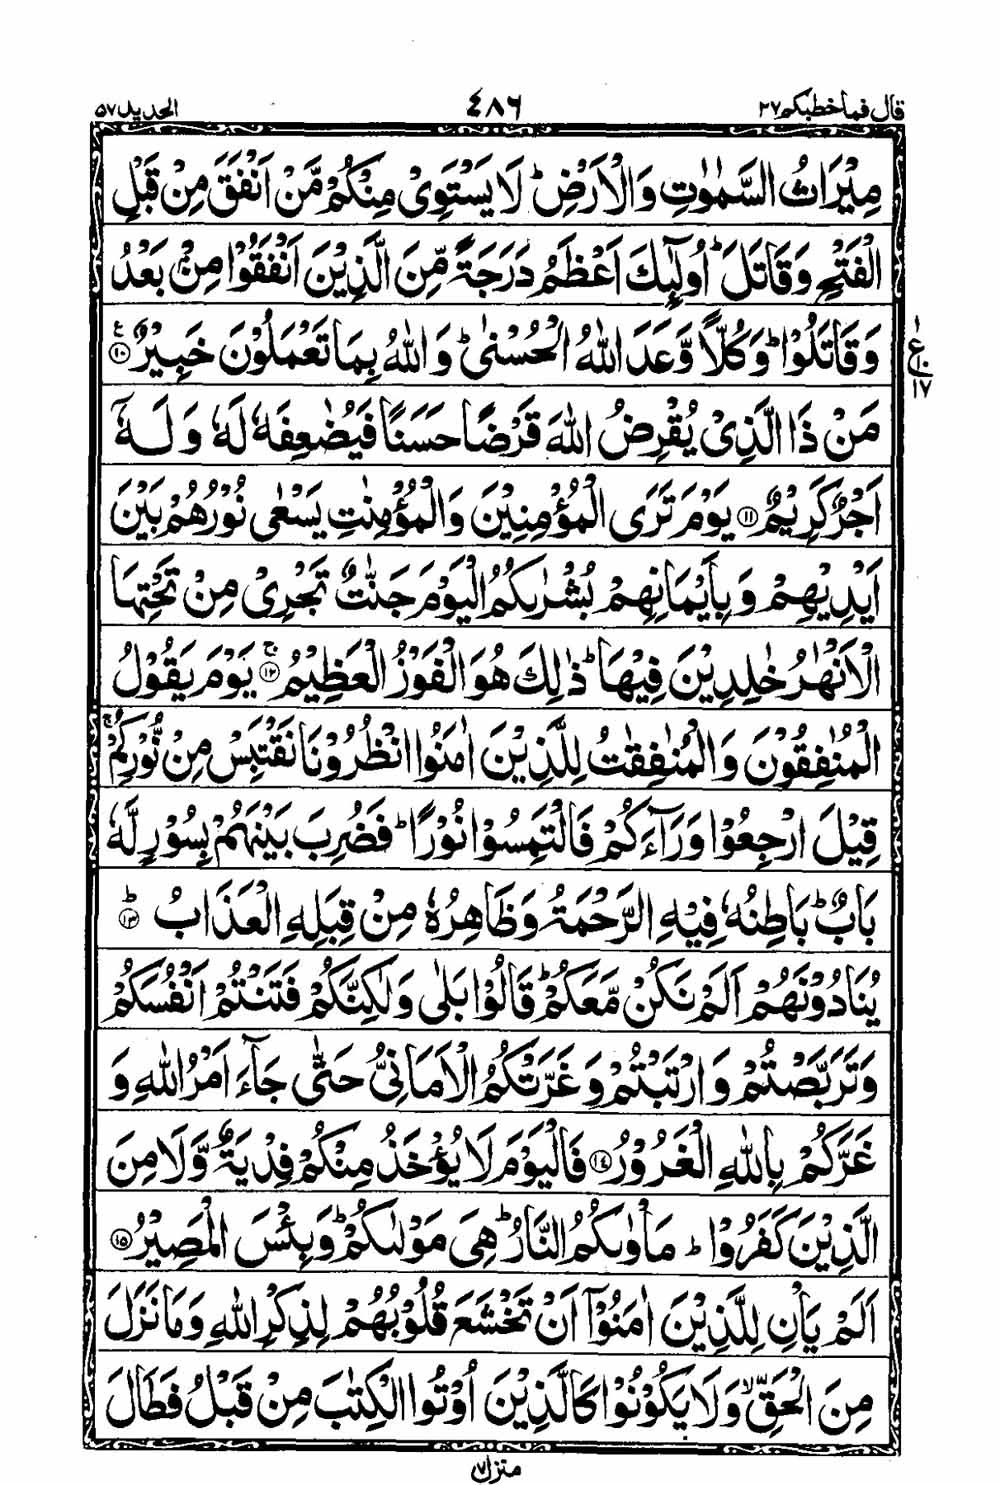 قال فما خطبكم ٢٧ ٤٨٦ الحديد ٥٧
مِيْرَاثُ السَّمٰوٰتِ وَالْاَرْضِ ؕ لَا يَسْتَوِىْ مِنْكُمْ مَّنْ اَنْفَقَ مِنْ قَبْلِ
الْفَتْحِ وَقَاتَلَ ؕ اُولٰٓئِكَ اَعْظَمُ دَرَجَةً مِّنَ الَّذِيْنَ اَنْفَقُوْا مِنْۢ بَعْدُ
وَقَاتَلُوْا ؕ وَكُلًّا وَّعَدَ اللّٰهُ الْحُسْنٰى ؕ وَاللّٰهُ بِمَا تَعْمَلُوْنَ خَبِيْرٌ ۝١٠ ع
مَنْ ذَا الَّذِىْ يُقْرِضُ اللّٰهَ قَرْضًا حَسَنًا فَيُضٰعِفَهٗ لَهٗ وَلَهٗۤ
اَجْرٌ كَرِيْمٌ ۝١١ يَوْمَ تَرَى الْمُؤْمِنِيْنَ وَالْمُؤْمِنٰتِ يَسْعٰى نُوْرُهُمْ بَيْنَ
اَيْدِيْهِمْ وَبِاَيْمَانِهِمْ بُشْرٰىكُمُ الْيَوْمَ جَنّٰتٌ تَجْرِىْ مِنْ تَحْتِهَا
الْاَنْهٰرُ خٰلِدِيْنَ فِيْهَا ؕ ذٰلِكَ هُوَ الْفَوْزُ الْعَظِيْمُ ۝١٢ۚ يَوْمَ يَقُوْلُ
الْمُنٰفِقُوْنَ وَالْمُنٰفِقٰتُ لِلَّذِيْنَ اٰمَنُوا انْظُرُوْنَا نَقْتَبِسْ مِنْ نُّوْرِكُمْ ۚ
قِيْلَ ارْجِعُوْا وَرَآءَكُمْ فَالْتَمِسُوْا نُوْرًا ؕ فَضُرِبَ بَيْنَهُمْ بِسُوْرٍ لَّهٗ
بَابٌ ؕ بَاطِنُهٗ فِيْهِ الرَّحْمَةُ وَظَاهِرُهٗ مِنْ قِبَلِهِ الْعَذَابُ ۝١٣ؕ
يُنَادُوْنَهُمْ اَلَمْ نَكُنْ مَّعَكُمْ ؕ قَالُوْا بَلٰى وَلٰكِنَّكُمْ فَتَنْتُمْ اَنْفُسَكُمْ
وَتَرَبَّصْتُمْ وَارْتَبْتُمْ وَغَرَّتْكُمُ الْاَمَانِىُّ حَتّٰى جَآءَ اَمْرُ اللّٰهِ وَ
غَرَّكُمْ بِاللّٰهِ الْغَرُوْرُ ۝١٤ فَالْيَوْمَ لَا يُؤْخَذُ مِنْكُمْ فِدْيَةٌ وَّلَا مِنَ
الَّذِيْنَ كَفَرُوْا ؕ مَاْوٰىكُمُ النَّارُ ؕ هِىَ مَوْلٰىكُمْ ؕ وَبِئْسَ الْمَصِيْرُ ۝١٥
اَلَمْ يَاْنِ لِلَّذِيْنَ اٰمَنُوْۤا اَنْ تَخْشَعَ قُلُوْبُهُمْ لِذِكْرِ اللّٰهِ وَمَا نَزَلَ
مِنَ الْحَقِّ ۙ وَلَا يَكُوْنُوْا كَالَّذِيْنَ اُوْتُوا الْكِتٰبَ مِنْ قَبْلُ فَطَالَ
منزل ٧
ع ١٠ ١٧